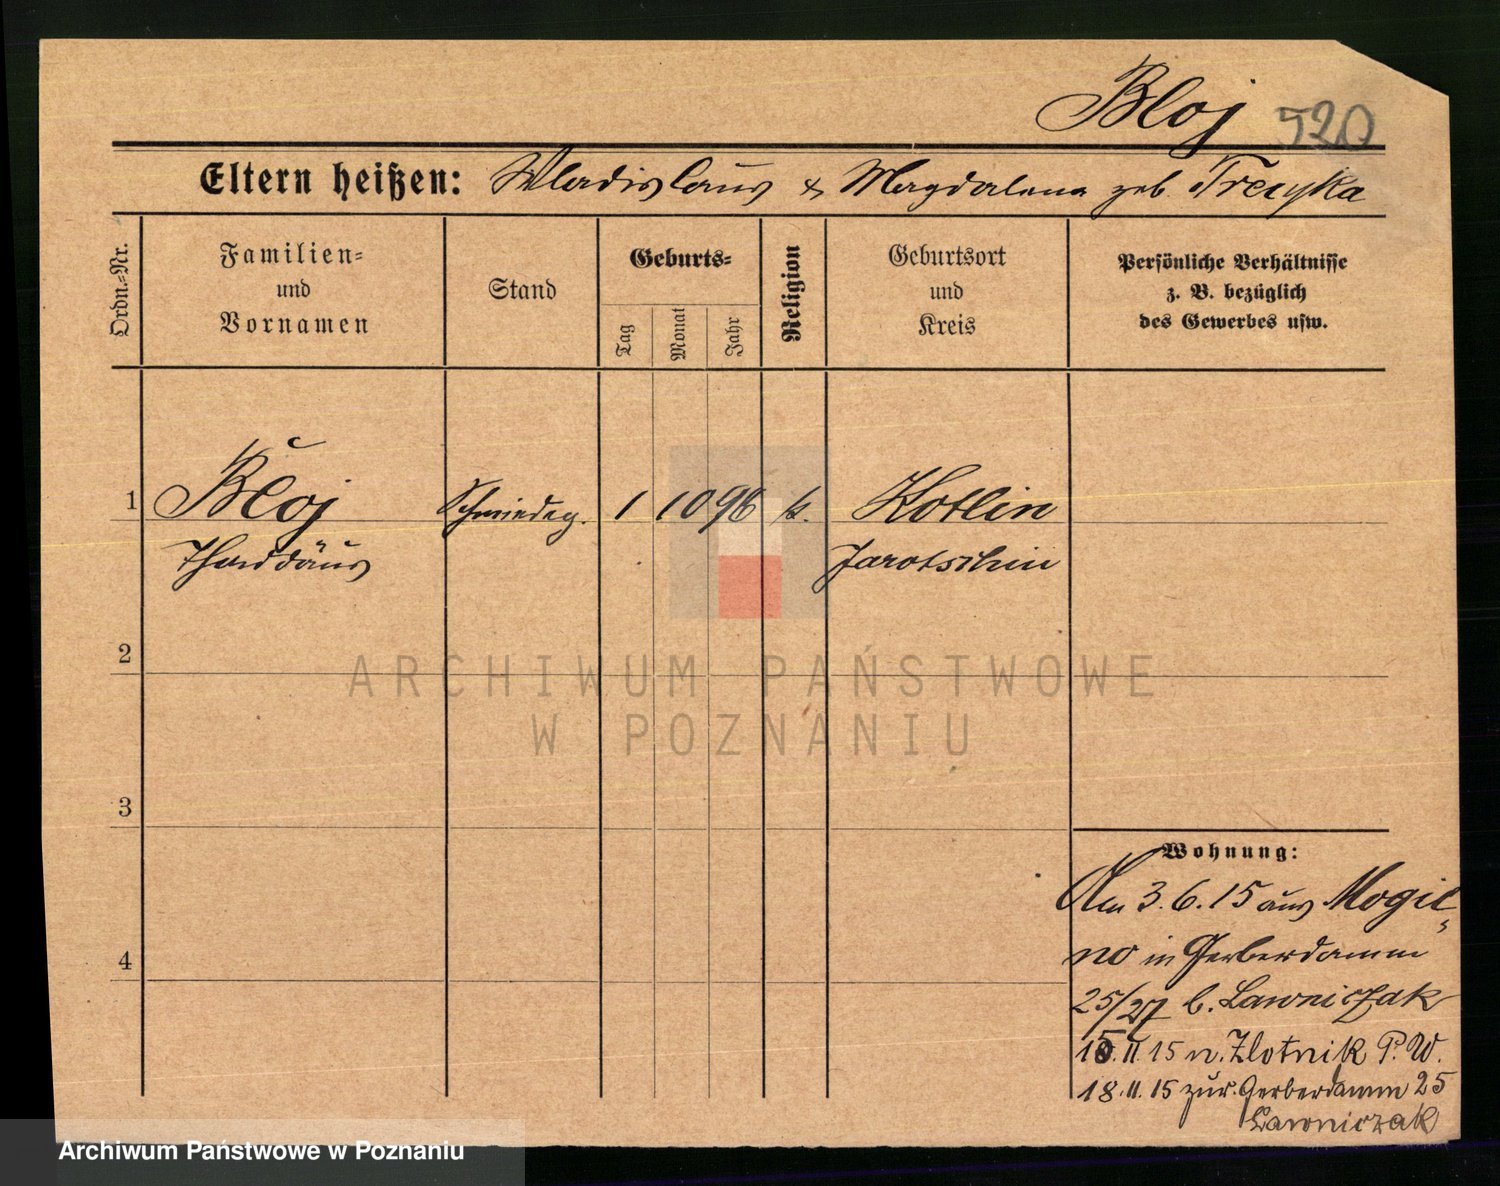 Bloj 520
Eltern heißen: Wladislaus & Magdalena geb. Trecyka
Ordn.-Nr.
Familien-
und
Vornamen
Stand
Geburts-
Tag
Monat
Jahr
Religion
Geburtsort
und
Kreis
Persönliche Verhältnisse
z. B. bezüglich
des Gewerbes usw.
1 Bloj Schmiedeg. 1 10 96 k. Kotlin
Thaddäus Jarotschin
2
3
4
Wohnung:
Am 3.6.15 aus Mogil-
no in Gerberdamm
25/27 b. Lawniczak
15.11 15 n. Zlotnik P. W.
18.11.15 zur. Gerberdamm 25
Lawniczak
ARCHIWUM PAŃSTWOWE
W POZNANIU
Archiwum Państwowe w Poznaniu